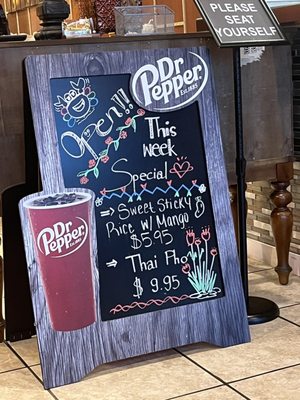 PLEASE
SEAT
YOURSELF
Dr Pepper
EST. 1885
Open!!!
This
week
Special
Dr Pepper
⇒ Sweet Sticky
Rice w/ Mango
$5.95
⇒ Thai Pho
$9.95